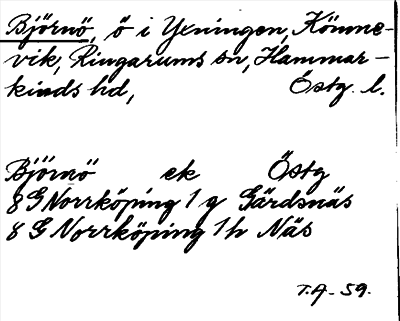 Björnö, ö i Yxningen, Könne-
vik, Ringarums sn, Hammar-
kinds hd, Östg. l.
Björnö ek Östg
8 G Norrköping 1 g Gärdsnäs
8 G Norrköping 1 h Näs
T.A. -59.